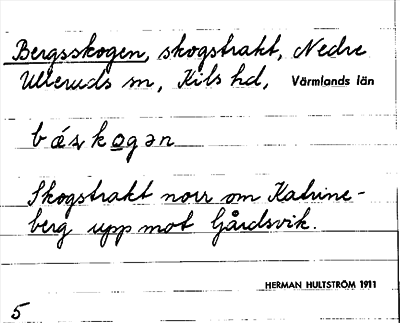 Bergsskogen, skogstrakt, Nedre
Ulleruds sn, Kils hd, Värmlands län
Skogstrakt norr om Katrine-
berg upp mot Gårdsvik.
HERMAN HULTSTRÖM 1911
5